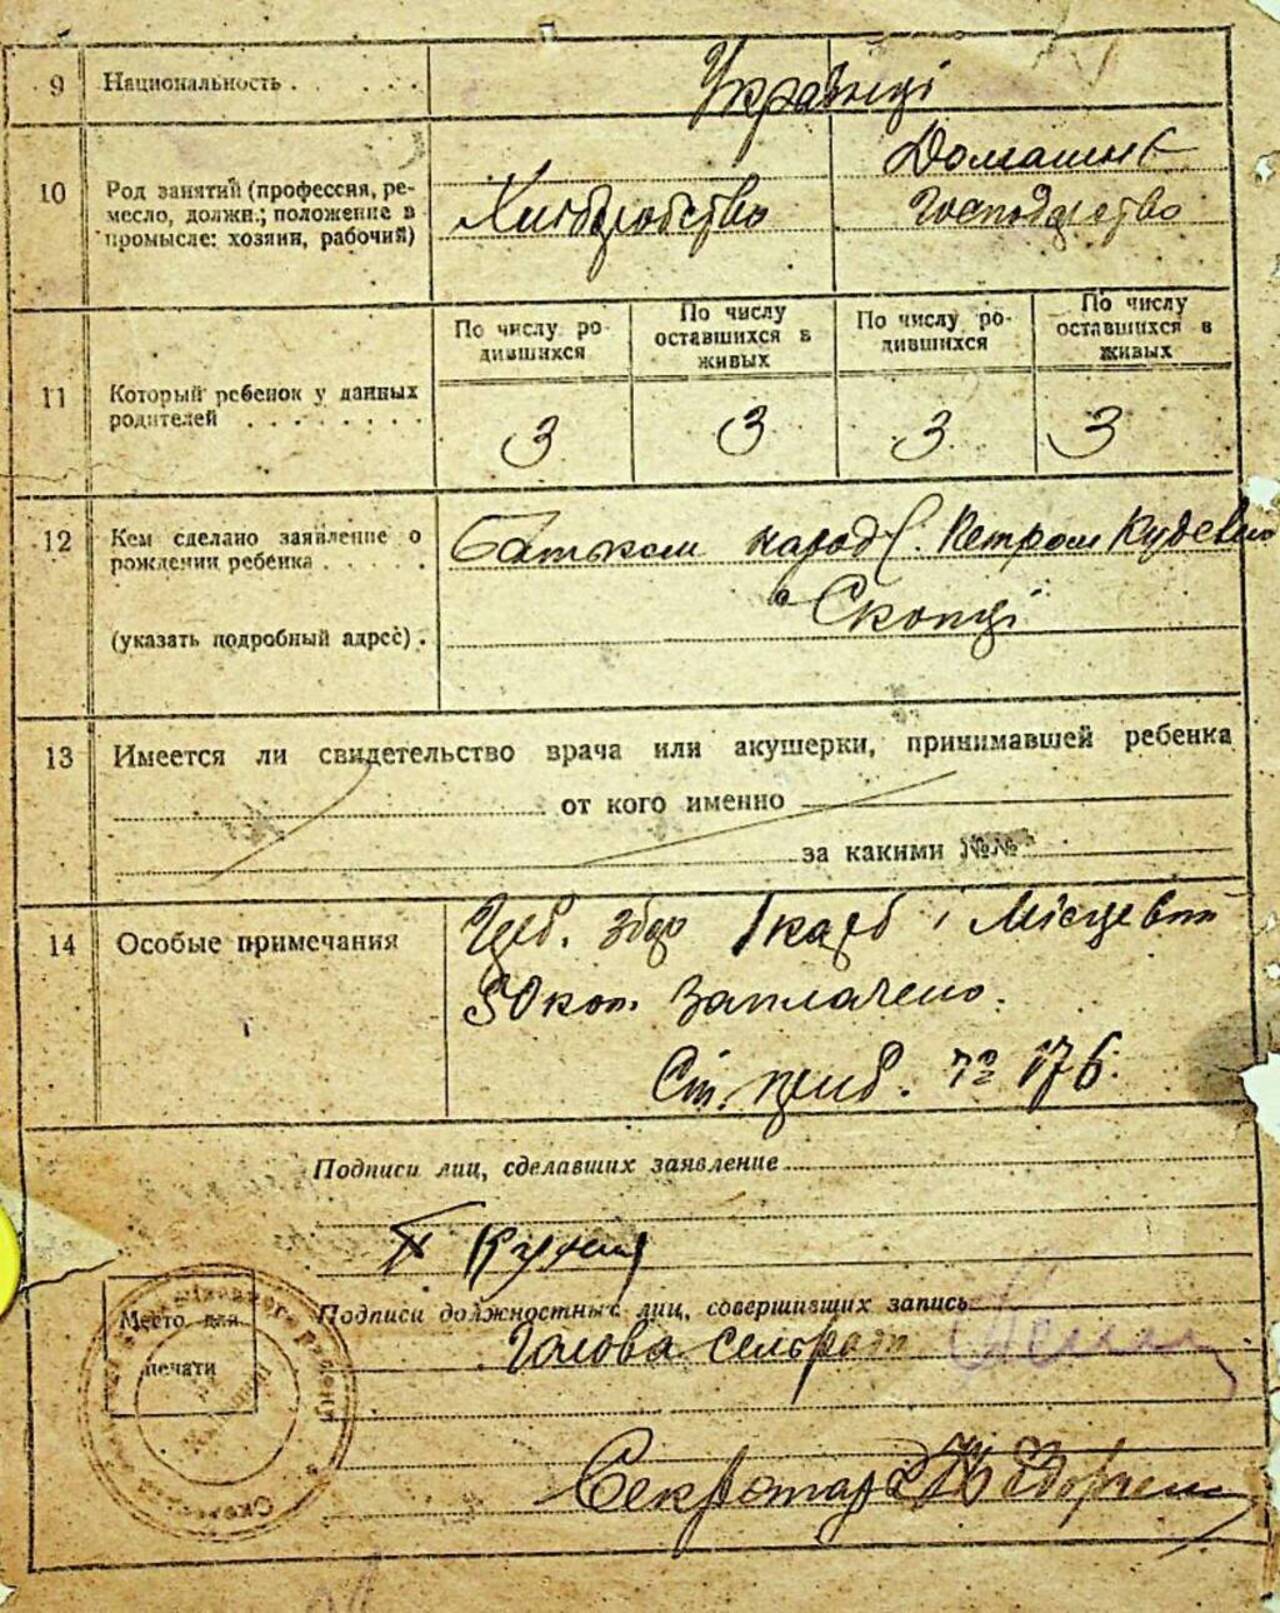 9 Национальность . . . . .
Українці
10 Род занятий (профессия, ре-
месло, должн.; положение в
промысле: хозяин, рабочий)
Хліборобство
Домашнє
Господарство
11 Который ребенок у данных
родителей . . . . . . . .
По числу ро-
дившихся
По числу
оставшихся в
живых
По числу ро-
дившихся
По числу
оставшихся в
живых
3 3 3 3
12 Кем сделано заявление о
рождении ребенка . . . . .
(указать подробный адрес) .
Батьком Петром
Скопці
13 Имеется ли свидетельство врача или акушерки, принимавшей ребенка
от кого именно
за какими №№
14 Особые примечания
збор і Місцевий
50 коп. Заплачено.
176.
Подписи лиц, сделавших заявление
Подписи должностных лиц, совершивших запись
Голова Сельради
Место для
печати
Секретар